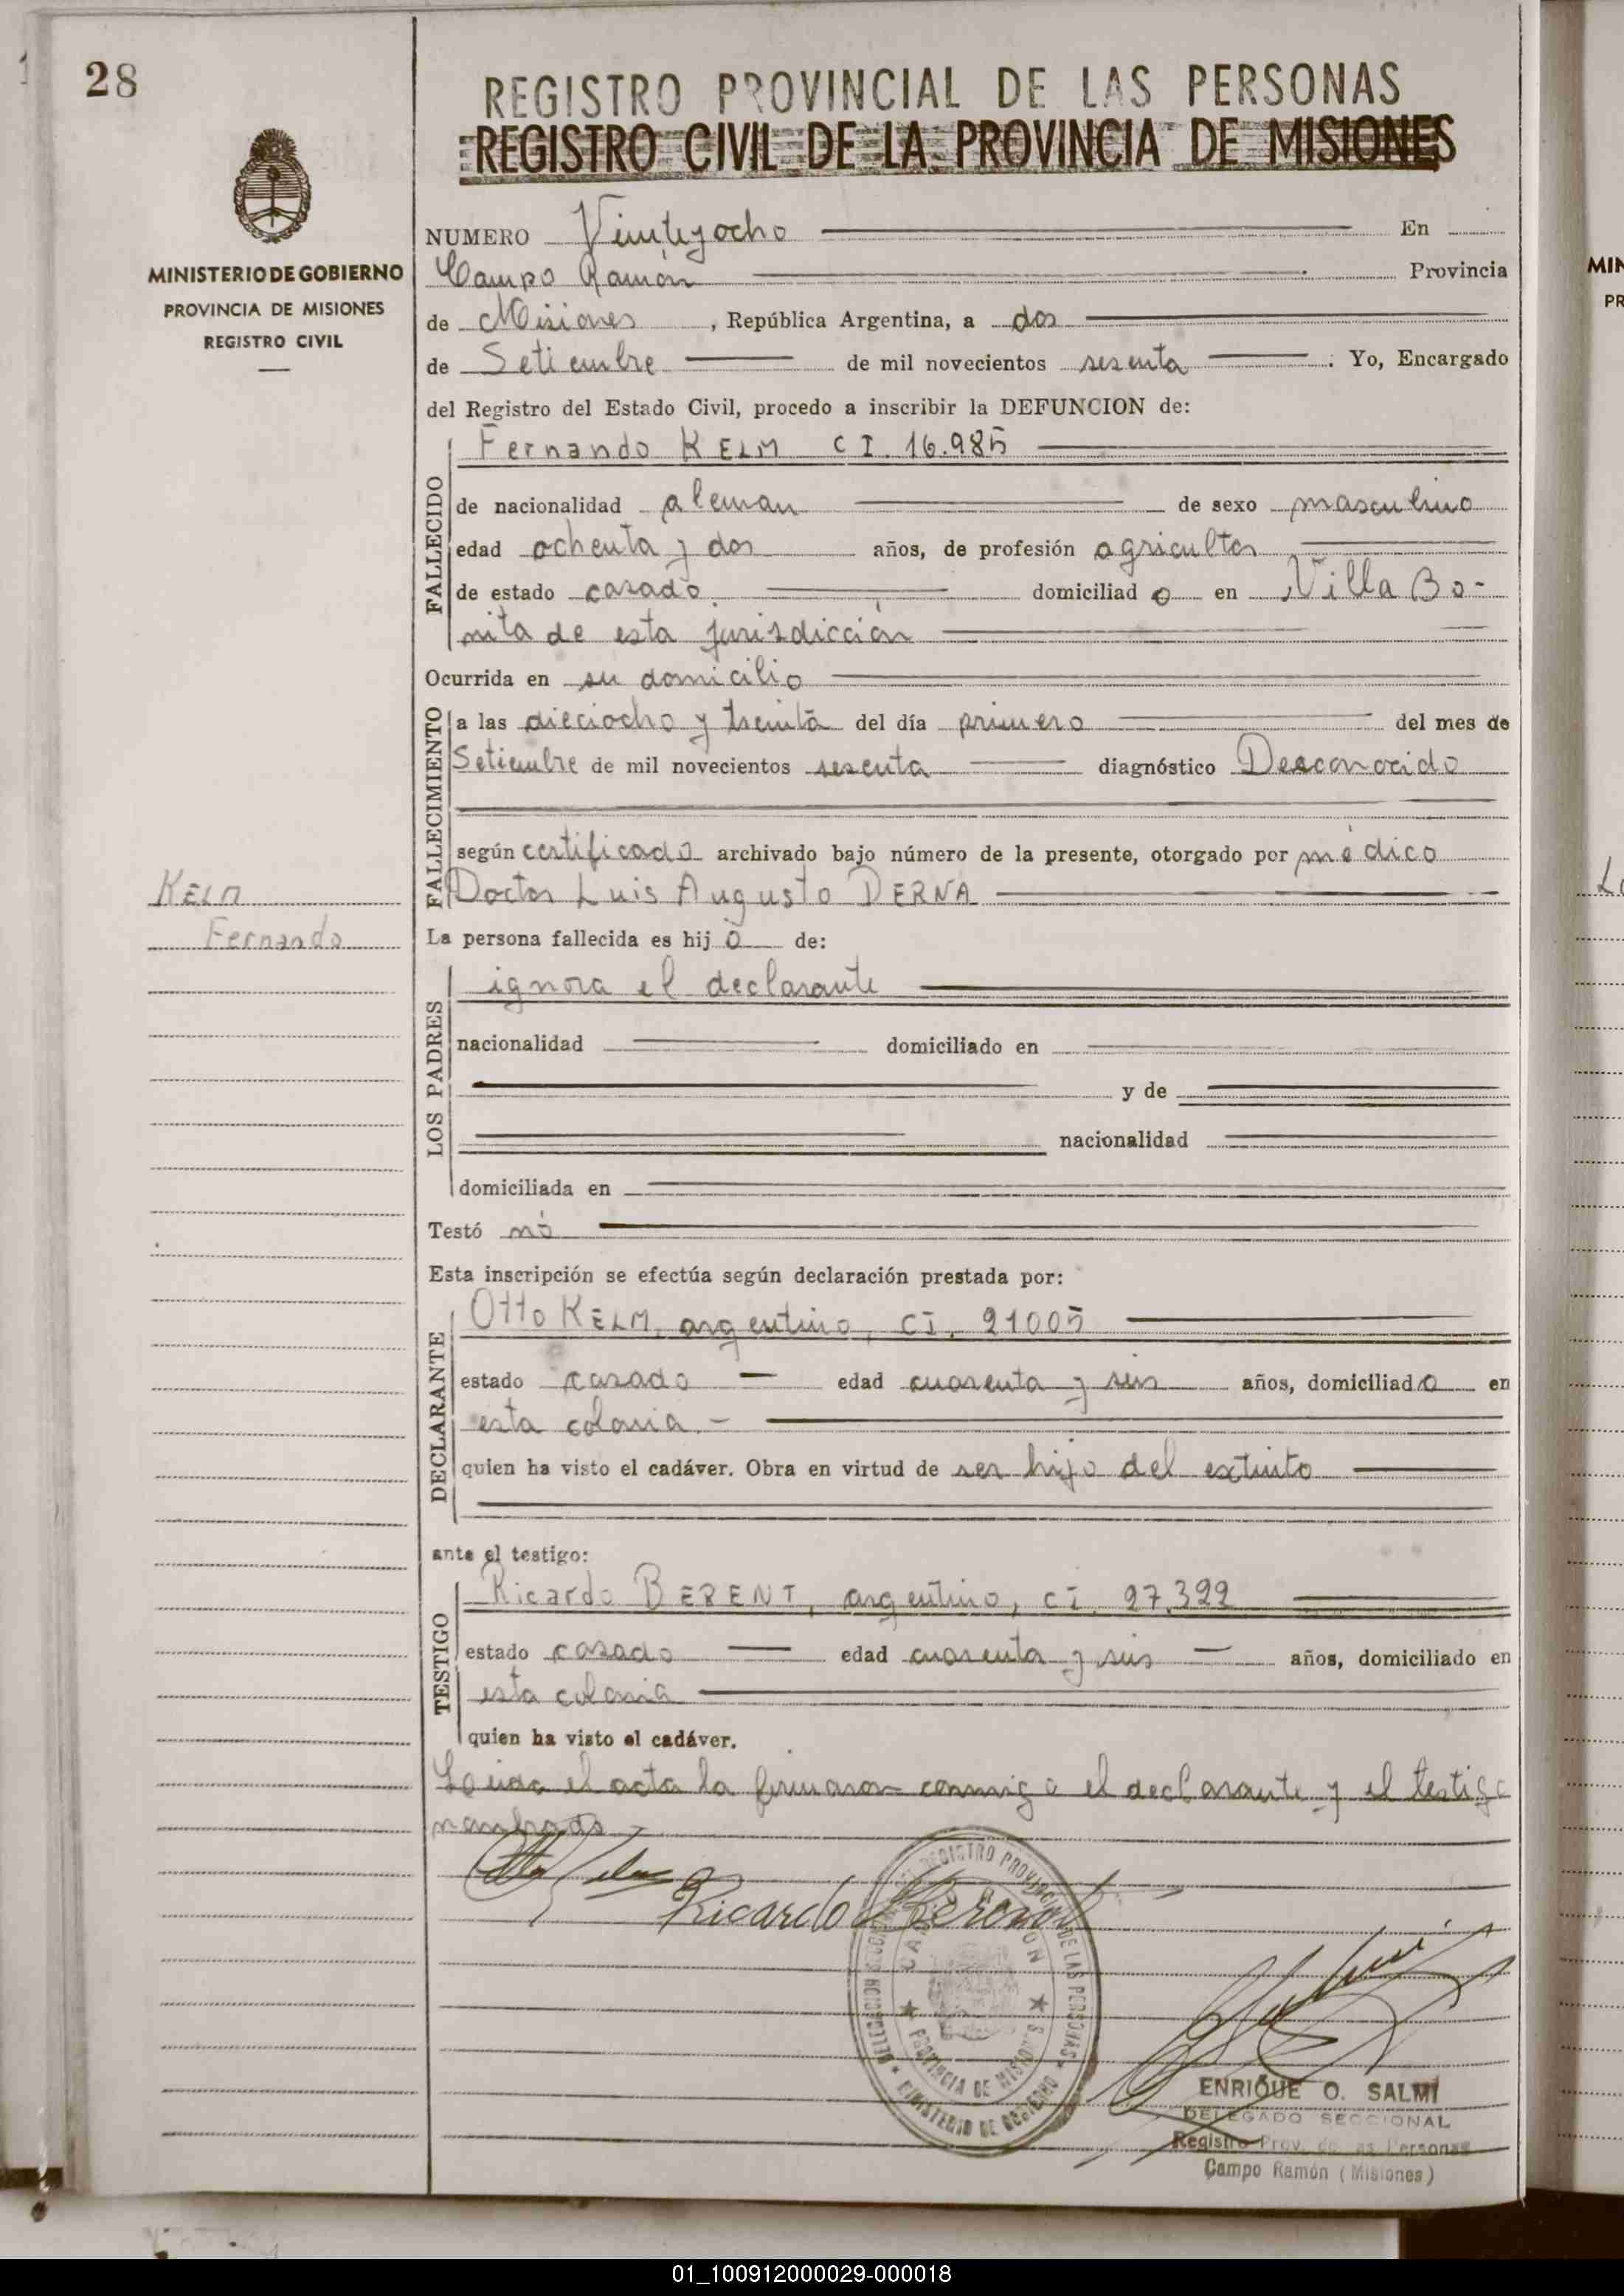 28
REGISTRO PROVINCIAL DE LAS PERSONAS
REGISTRO CIVIL DE LA PROVINCIA DE MISIONES
MINISTERIO DE GOBIERNO
PROVINCIA DE MISIONES
REGISTRO CIVIL
NUMERO Veintiyocho En
Campo Ramón Provincia
de Misiones, República Argentina, a dos
de Setiembre de mil novecientos sesenta. Yo, Encargado
del Registro del Estado Civil, procedo a inscribir la DEFUNCION de:
FALLECIDO
Fernando KELM CI. 16.985
de nacionalidad aleman de sexo masculino
edad ochenta y dos años, de profesión agricultor
de estado casado domiciliado en Villa Bo-
nita de esta jurisdicción
Ocurrida en su domicilio
FALLECIMIENTO
a las dieciocho y treinta del día primero del mes de
Setiembre de mil novecientos sesenta diagnóstico Desconocido
según certificado archivado bajo número de la presente, otorgado por médico
Doctor Luis Augusto DERNA
KELM
Fernando
La persona fallecida es hijo de:
LOS PADRES
ignora el declarante
nacionalidad domiciliado en
y de
nacionalidad
domiciliada en
Testó nó
Esta inscripción se efectúa según declaración prestada por:
DECLARANTE
Otto KELM, argentino, CI. 21005
estado casado edad cuarenta y seis años, domiciliado en
esta colonia.-
quien ha visto el cadáver. Obra en virtud de ser hijo del extinto
ante el testigo:
TESTIGO
Ricardo BERENT, argentino, CI. 27.322
estado casado edad cuarenta y seis años, domiciliado en
esta colonia
quien ha visto el cadáver.
Leida el acta la firmaron conmigo el declarante y el testigo
nombrado
Otto Kelm
Ricardo Berent
REGISTRO PROVINCIAL DE LAS PERSONAS
CAMPO RAMON
PROVINCIA DE MISIONES
MINISTERIO DE GOBIERNO
ENRIQUE O. SALMI
DELEGADO SECCIONAL
Registro Prov. de las Personas
Campo Ramón (Misiones)
MIN
PR
01_100912000029-000018